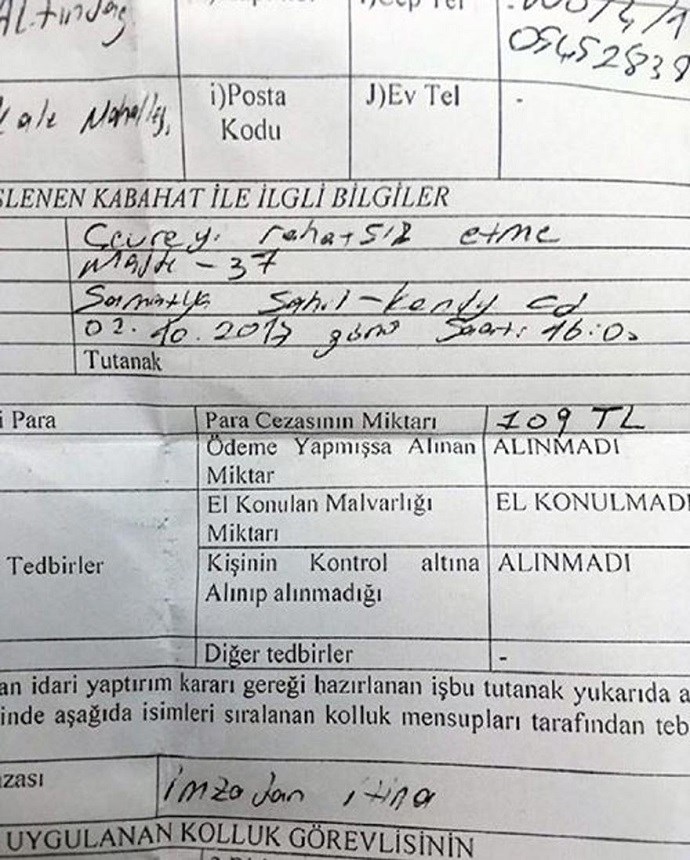 Altındağ
05452838
i)Posta Kodu J)Ev Tel -
Kale Mahallesi,
İŞLENEN KABAHAT İLE İLGLİ BİLGİLER
Çevreyi rahatsız etme
Madde - 37
Samatya Sahil - kendy cd
02.10.2017 günü Saat: 16:0
Tutanak
i Para Para Cezasının Miktarı 109 TL
Ödeme Yapmışsa Alınan Miktar ALINMADI
El Konulan Malvarlığı Miktarı EL KONULMADI
Tedbirler Kişinin Kontrol altına Alınıp alınmadığı ALINMADI
Diğer tedbirler -
an idari yaptırım kararı gereği hazırlanan işbu tutanak yukarıda a
inde aşağıda isimleri sıralanan kolluk mensupları tarafından teb
zası İmzadan itina
UYGULANAN KOLLUK GÖREVLİSİNİN